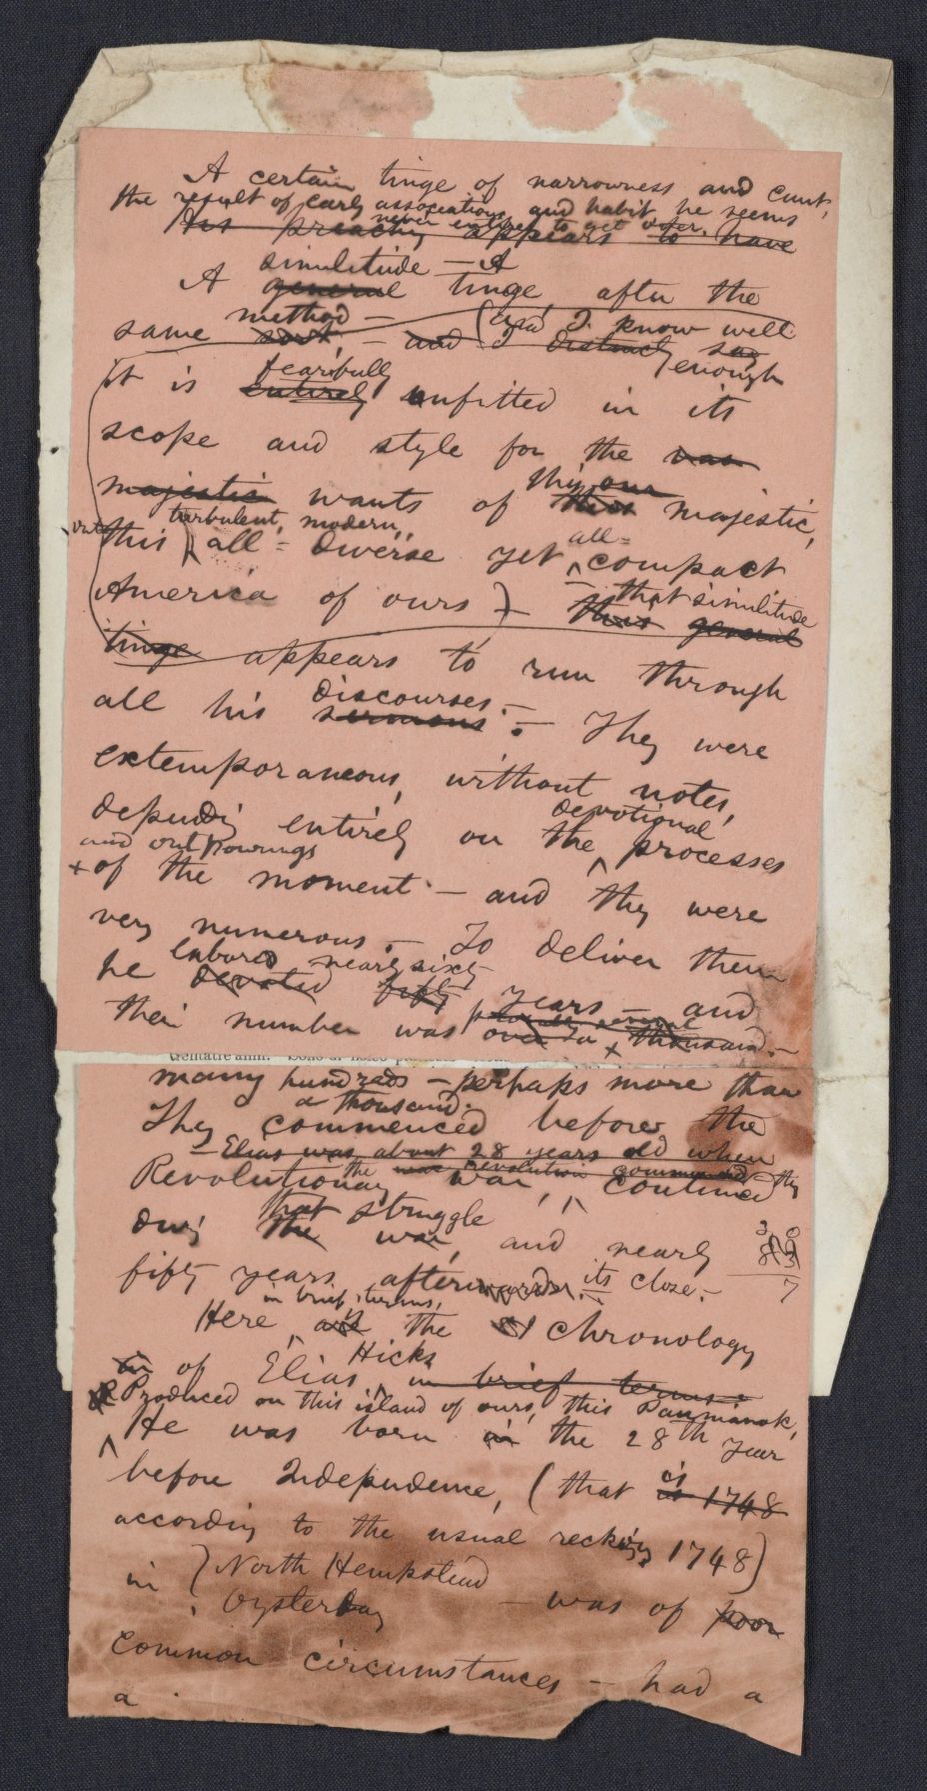 A certain tinge of narrowness and cant,
the result of early associations and habit he seems
never entirely to get over.
his preaching appears to have
simulitude — A
A general tinge after the
method — (and I know well
same sort, — and I distinctly say
fearfully enough
it is entirely unfitted in its
scope and style for the vas
this our
majestic wants of this majestic,
turbulent, modern,
this all = diverse yet all = compact
that similitude
America of ours) — this general
tinge appears to run through
discourses. —
all his sermons. — They were
extemporaneous, without notes,
devotional
depending entirely on the processes
and outpourings
+ of the moment — and they were
very numerous. — To deliver them
labored nearly sixty
he devoted fifty years — and
their number was over a thousand. —
many hundreds — perhaps more than
a thousand.
They commenced before the
— Elias was about 28 years old when
the war revolution commenced
Revolutionary war, continued
that struggle
during the war, and nearly
fifty years afterwards. its close. —
in brief terms,
Here are the chronology
Hicks
in of Elias in brief terms.
Produced on this island of ours, this Paumanok,
He was born in the 28th year
is
before Independence, (that is 1748
according to the usual recking 1748)
in (North Hempstead
Oysterbay — was of poor
common circumstances — had a
a